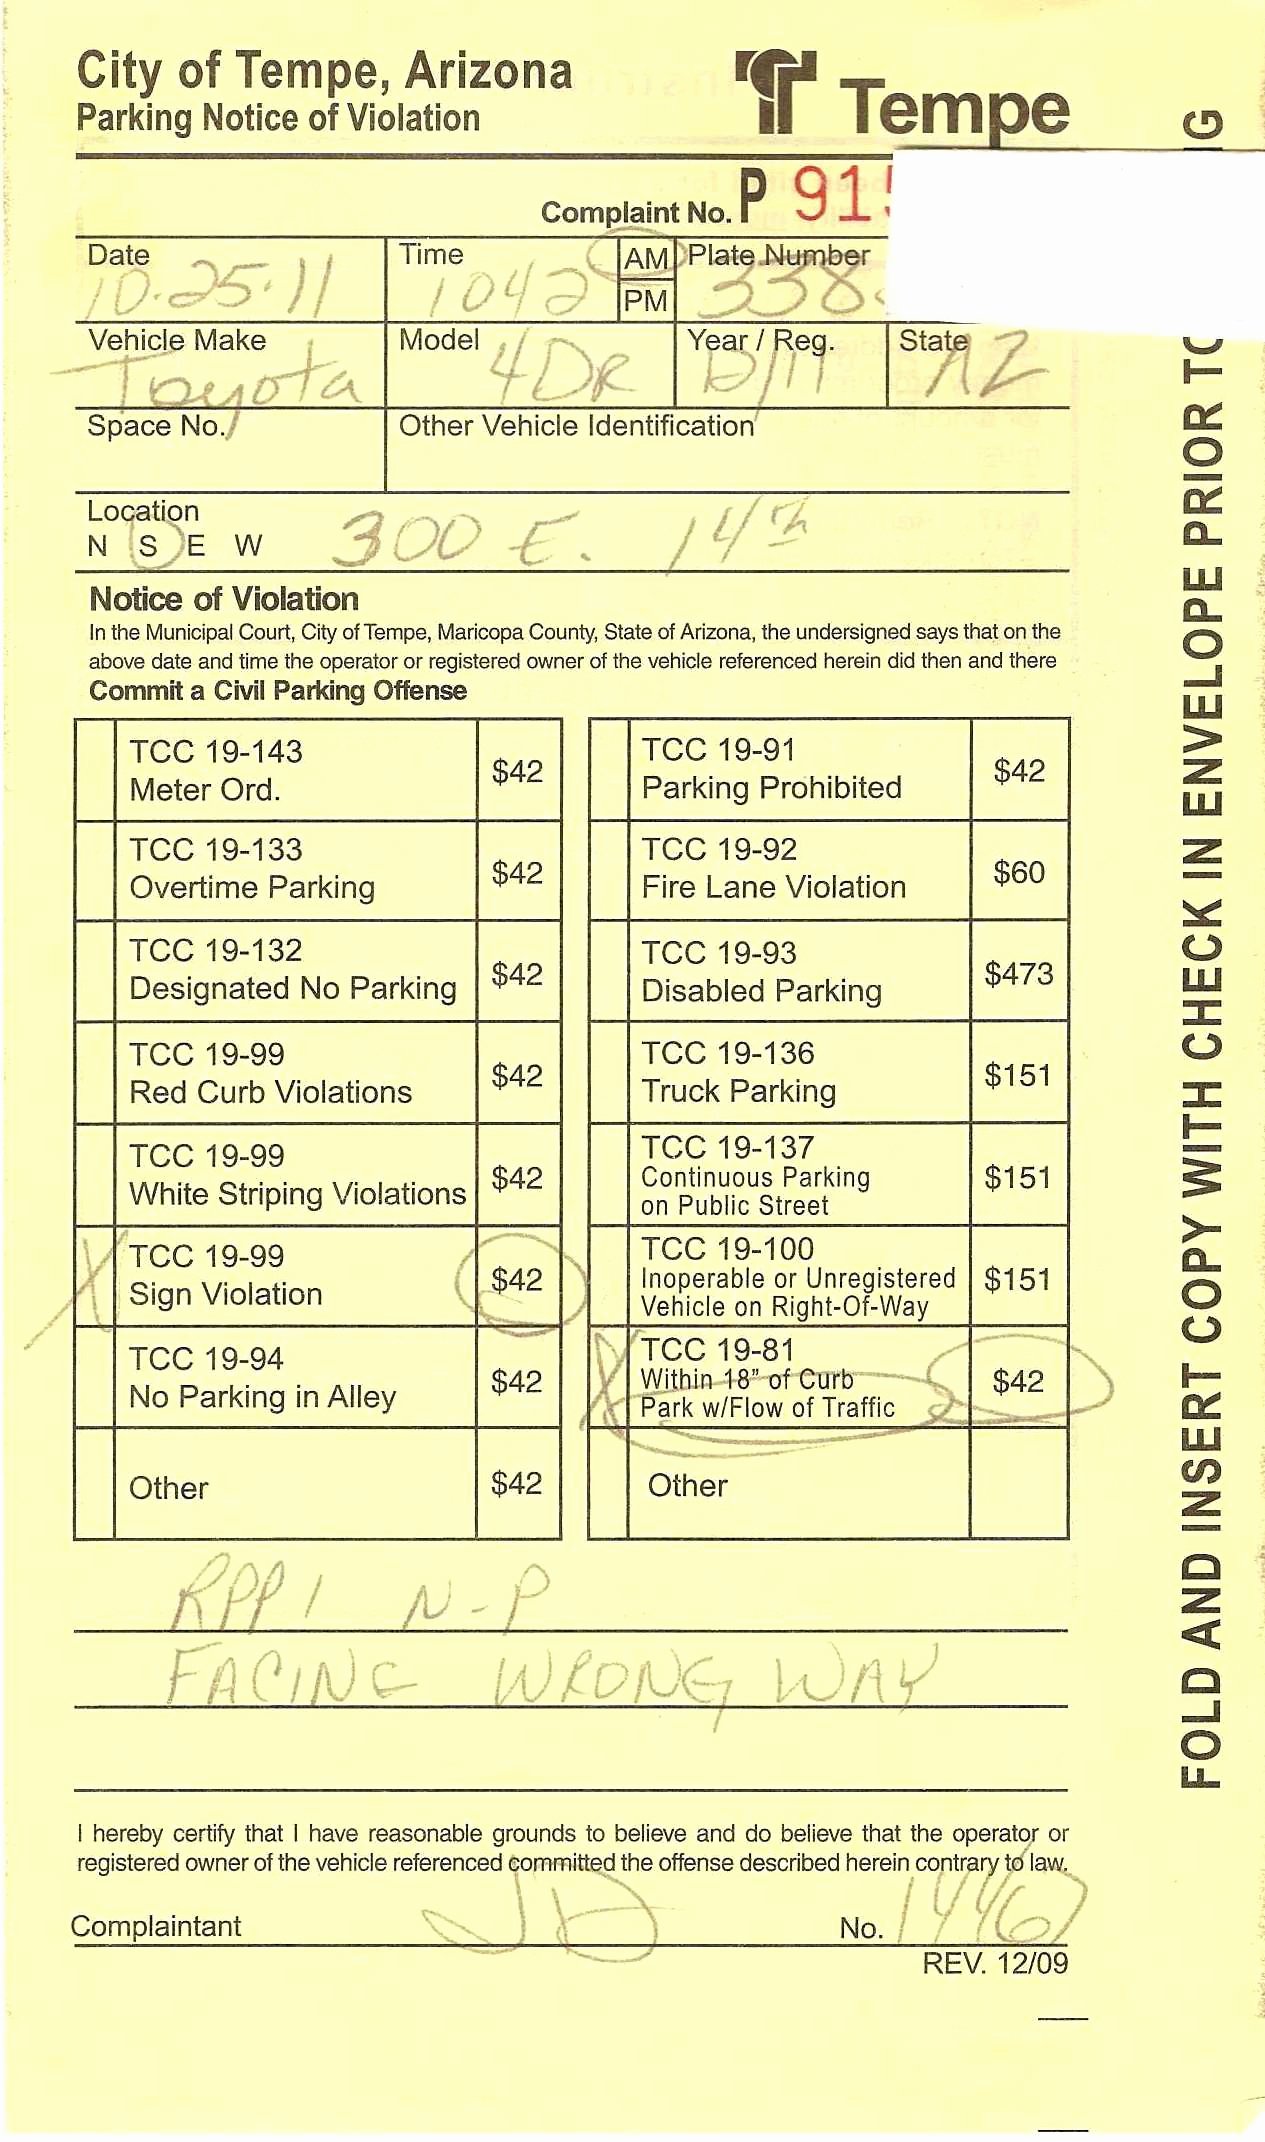 City of Tempe, Arizona
Parking Notice of Violation
Tempe
Complaint No. P 91
Date 10.25.11
Time 1042 AM PM
Plate Number 338
Vehicle Make Toyota
Model 4DR
Year / Reg. 12/11
State AZ
Space No.
Other Vehicle Identification
Location
N S E W 300 E. 14th
Notice of Violation
In the Municipal Court, City of Tempe, Maricopa County, State of Arizona, the undersigned says that on the
above date and time the operator or registered owner of the vehicle referenced herein did then and there
Commit a Civil Parking Offense
TCC 19-143
Meter Ord.
$42
TCC 19-133
Overtime Parking
$42
TCC 19-132
Designated No Parking
$42
TCC 19-99
Red Curb Violations
$42
TCC 19-99
White Striping Violations
$42
X TCC 19-99
Sign Violation
$42
TCC 19-94
No Parking in Alley
$42
Other
$42
TCC 19-91
Parking Prohibited
$42
TCC 19-92
Fire Lane Violation
$60
TCC 19-93
Disabled Parking
$473
TCC 19-136
Truck Parking
$151
TCC 19-137
Continuous Parking
on Public Street
$151
TCC 19-100
Inoperable or Unregistered
Vehicle on Right-Of-Way
$151
X TCC 19-81
Within 18" of Curb
Park w/Flow of Traffic
$42
Other
RPP1 N-P
FACING WRONG WAY
I hereby certify that I have reasonable grounds to believe and do believe that the operator or
registered owner of the vehicle referenced committed the offense described herein contrary to law.
Complaintant JD No. 1446
REV. 12/09
FOLD AND INSERT COPY WITH CHECK IN ENVELOPE PRIOR TO